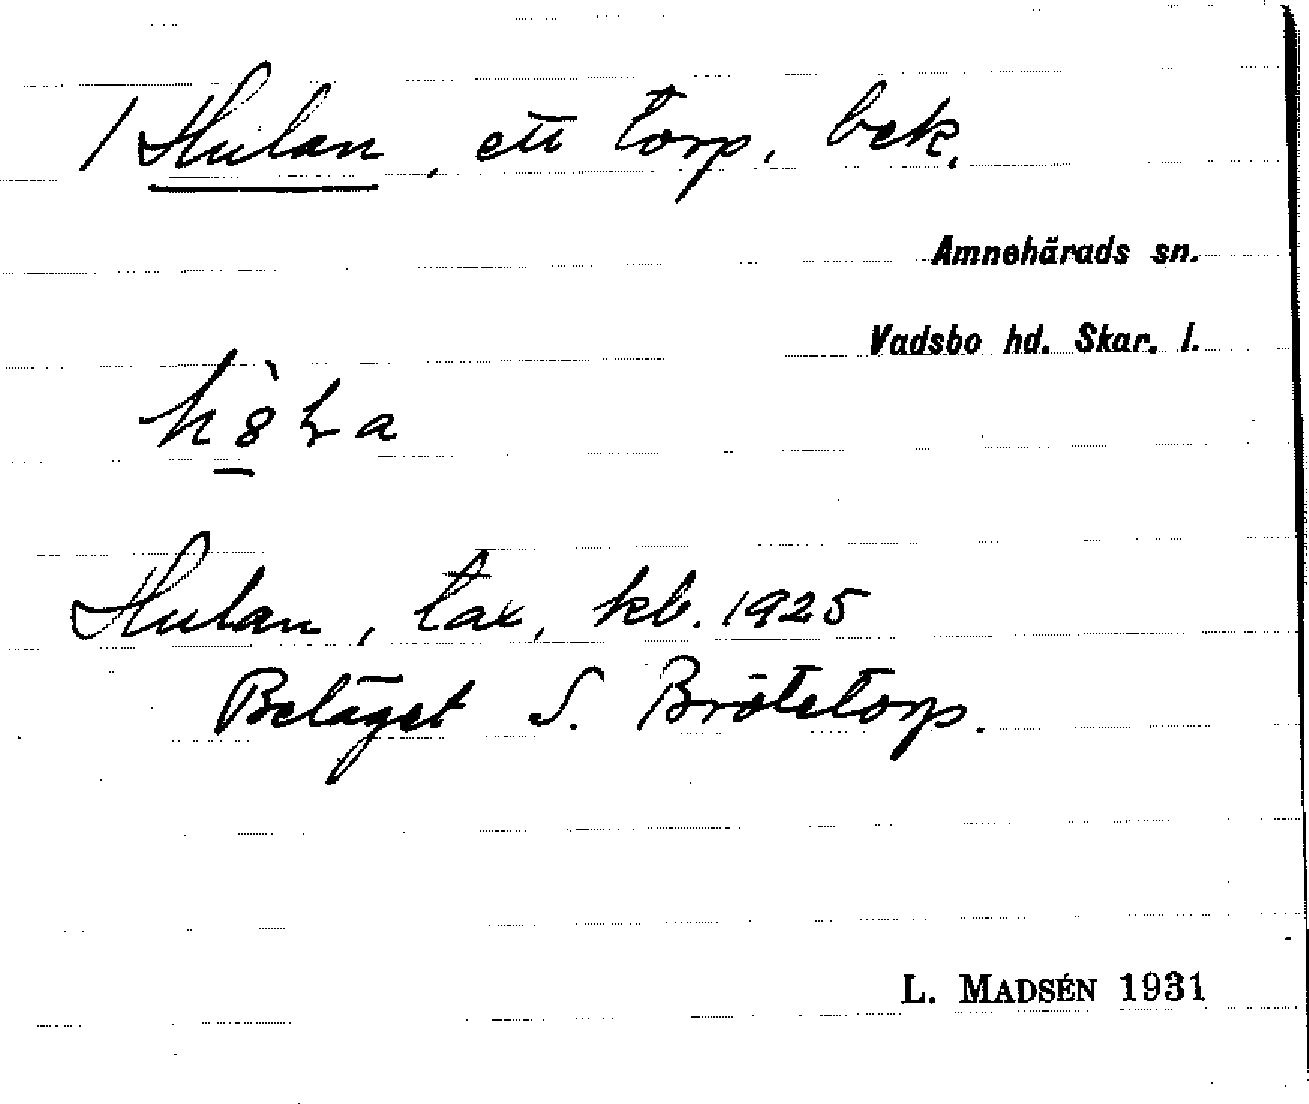 / Hulan, ett torp, bek.
Amnehärads sn.
Vadsbo hd. Skar. l.
Hulan, tax, kb. 1925
Beläget S. Brötetorp.
L. MADSÉN 1931